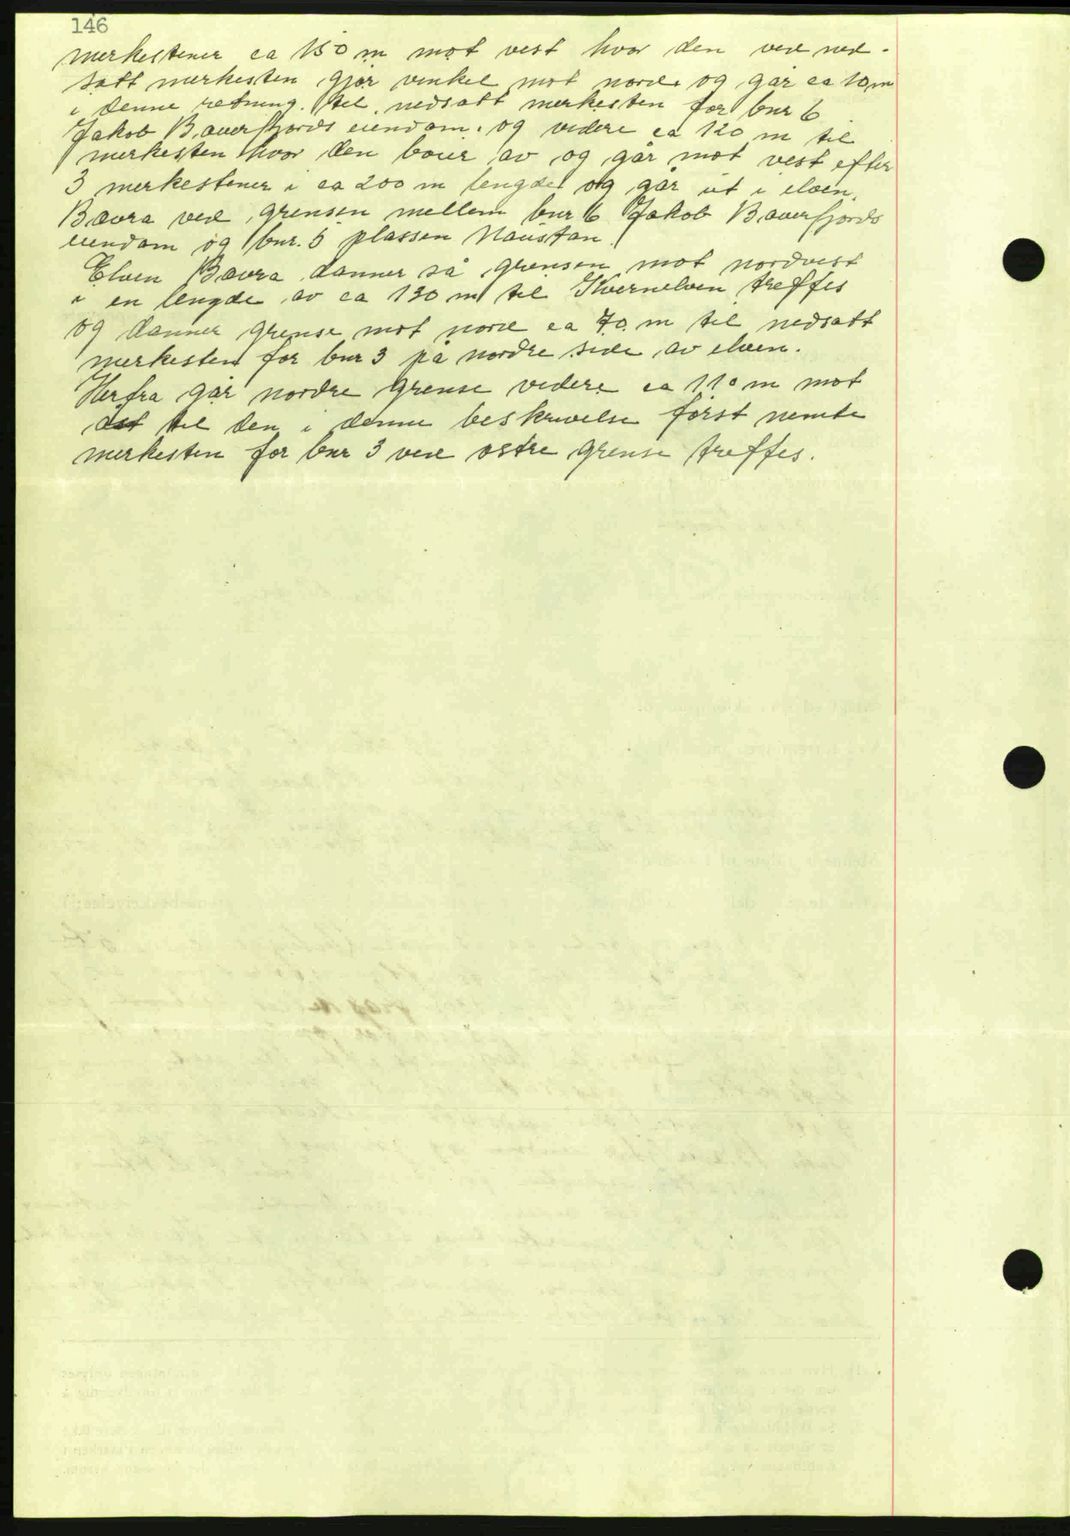 146
merkestener ca 150 m mot vest hvor den ved ned-
satt merkesten gjør vinkel mot nord og går ca 10 m
i denne retning. til nedsatt merkesten for bnr 6
Jakob Bæverfjords eiendom. og videre ca 120 m til
merkesten hvor den bøier av og går mot vest efter
3 merkestener i ca 200 m lengde og går ut i elven
Bævra ved grensen mellem bnr 6 Jakob Bæverfjords
eiendom og bnr. 5 plassen Naustan.
Elven Bævra danner så grensen mot nordvest
i en lengde av ca 130 m til Kvernelven treffes
og danner grense mot nord ca 70 m til nedsatt
merkesten for bnr 3 på nordre side av elven.
Herfra går nordre grense videre ca 110 m mot
øst til den i denne beskrivelse først nemte
merkesten for bnr 3 ved østre grense treffes.